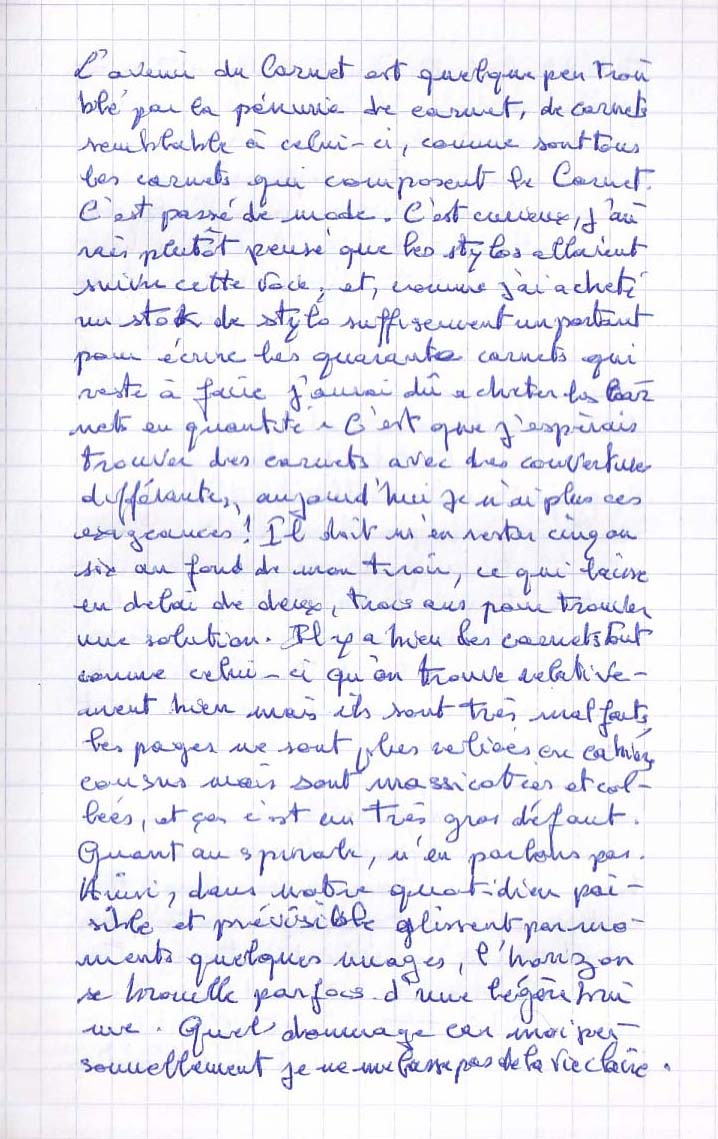 L'avenir du Carnet est quelque peu trou
blé par la pénurie de carnet, de carnets
semblable à celui-ci, comme sont tous
les carnets qui composent le Carnet.
C'est passé de mode. C'est curieux, j'au
rais plutôt pensé que les stylos allaient
suivre cette voie, et, comme j'ai acheté
un stock de stylo suffisamment important
pour écrire les quarante carnets qui
reste à faire j'aurai dû acheter les car
nets en quantité. C'est que j'espérais
trouver des carnets avec des couvertures
différantes, aujourd'hui je n'ai plus ces
exigeances! Il doit m'en rester cinq ou
six au fond de mon tiroir, ce qui laisse
un délai de deux, trois ans pour trouver
une solution. Il y a bien des carnets tout
comme celui-ci qu'on trouve relative-
ment bien mais ils sont très mal faits,
les pages ne sont plus reliées en cahiers
cousus mais sont massicotées et col-
lées, et ça c'est un très gros défaut.
Quant au spirale, n'en parlons pas.
Ainsi, dans notre quotidien pai-
sible et prévisible glissent par mo-
ments quelques nuages, l'horizon
se brouille parfois d'une légère bru
me. Quel dommage car moi per-
sonnellement je ne me lasse pas de la vie claire.